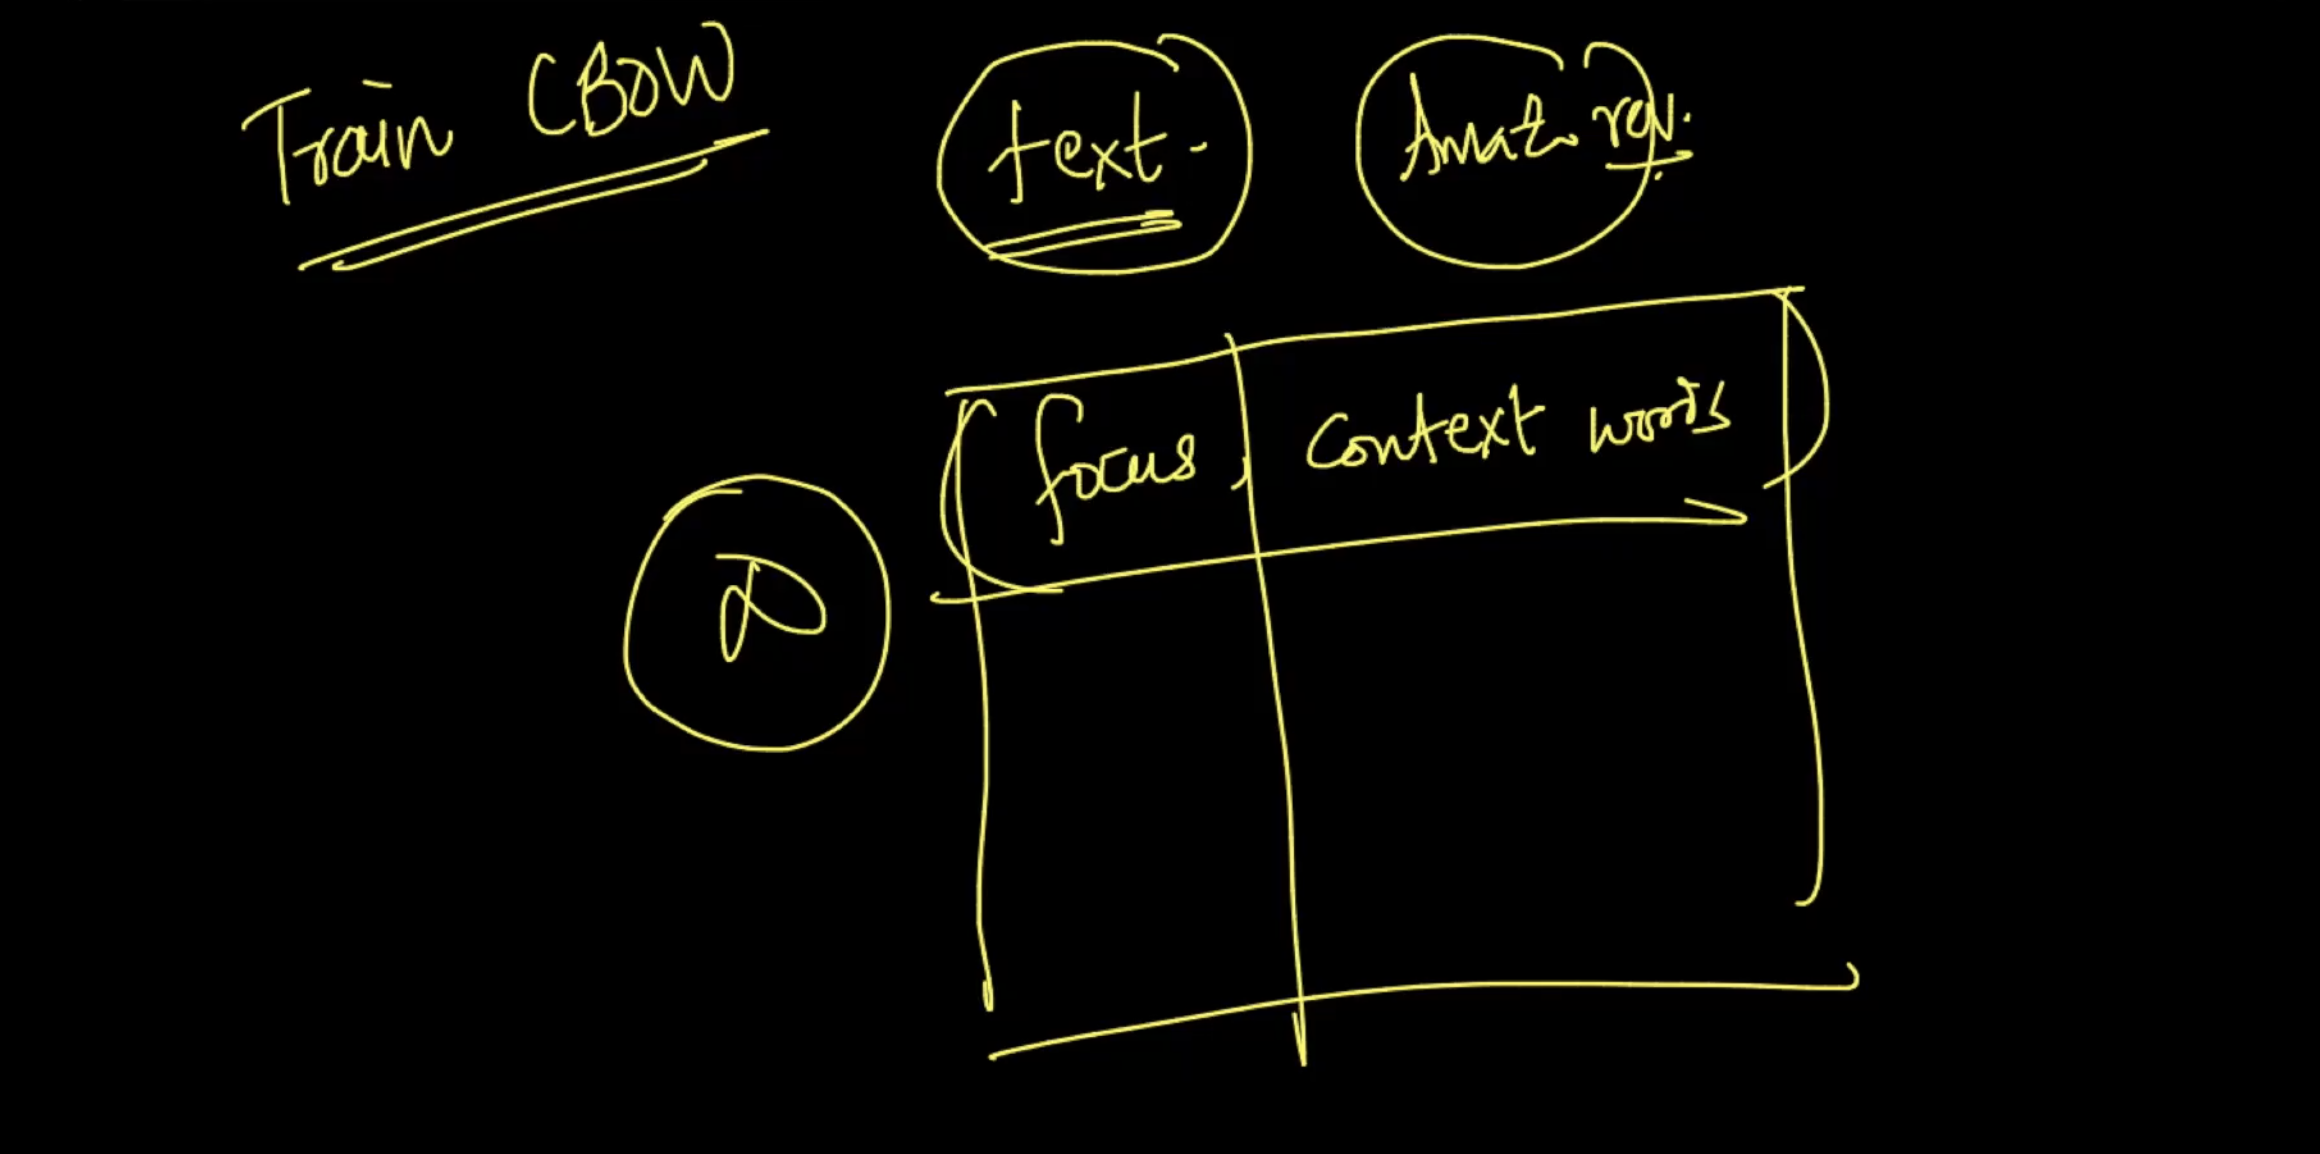 Train CBOW
text.
Amaz. rev.
focus, context words
D